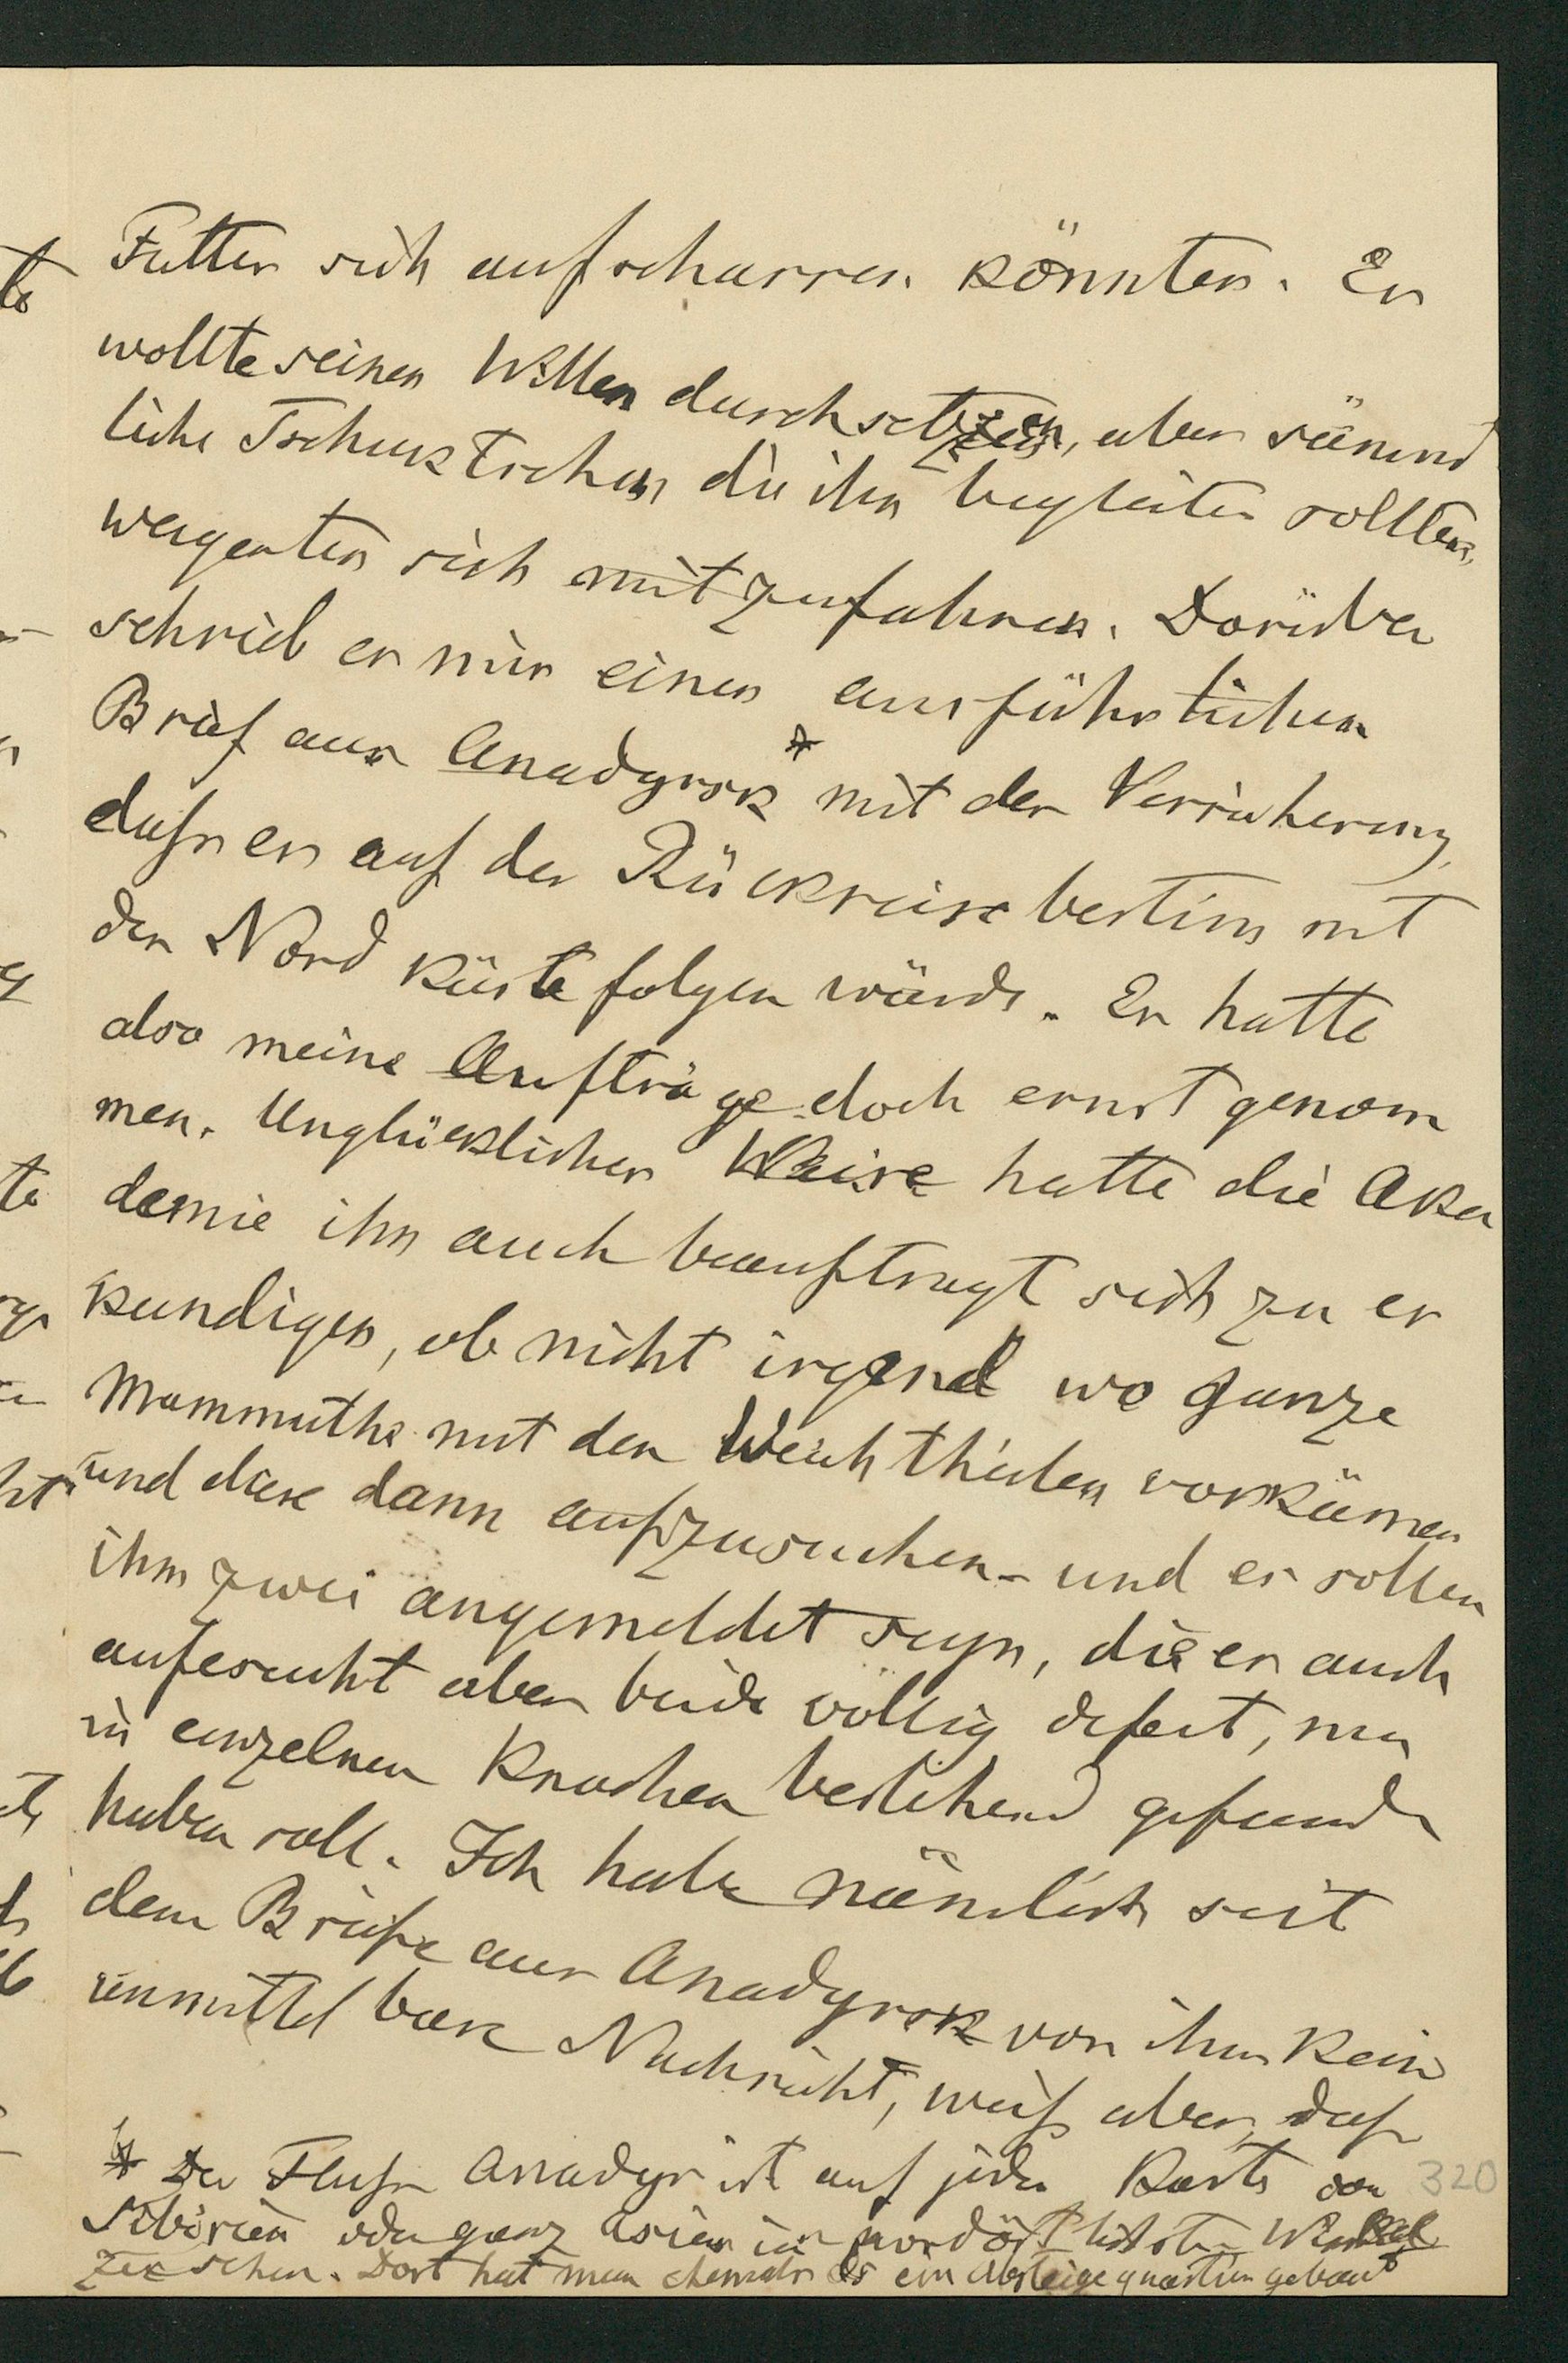 Futter sich aufscharren könnten. Er
wollte seinen Willen durchsetzen, aber sämmt
liche Tschuktschen die ihn begleiten sollten,
weigerten sich mitzufahren. Darüber
schrieb er mir einen ausführlichen
Brief aus Anadyrsk* mit der Versicherung,
dass er auf der Rückreise bestimmt
der Nordküste folgen würde. Er hatte
also meine Aufträge doch ernst genom
men. Unglücklicher Weise hatte die Aka
demie ihn auch beauftragt sich zu er
kundigen, ob nicht irgend wo ganze
Mammuthe mit den Weichtheilen vorkämen
und diese dann aufzusuchen – und es sollen
ihm zwei angemeldet seyn, die er auch
aufesucht aber beide völlig defect, nur
in einzelnen Knochen bestehend gefunden
haben soll. Ich habe nämlich seit
dem Briefe aus Anadyrsk von ihm keine
unmittelbare Nachricht, weiss aber, dass
* Der Fluss Anadyr ist auf jeder Karte von
Sibirien oder ganz Asien im nordöstlichsten Winkel
zu sehen. Dort hat man ehemals ein Absteigequartier gebaut
320